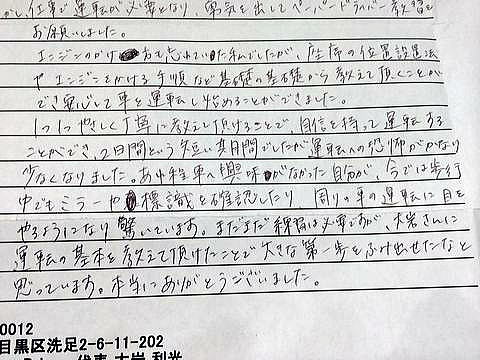 かし、仕事で運転が必要となり、勇気を出してペーパードライバー教習を
お願いしました。
エンジンのかけ方も忘れていた私でしたが、座席の位置設置法
やエンジンをかける手順など基礎の基礎から教えて頂くことが
でき安心して車を運転し始めることができました。
1つ1つやさしく丁寧に教えて頂けることで、自信を持って運転する
ことができ、2日間という短い期間でしたが運転への恐怖がかなり
少なくなりました。あれ程車へ興味がなかった自分が、今では歩行
中でもミラーや標識を確認したり 周りの車の運転に目を
やるようになり驚いています。まだまだ練習は必要ですが、大岩さんに
運転の基本を教えて頂けたことで大きな第一歩をふみ出せたなと
思っています。本当にありがとうございました。
0012
目黒区洗足2-6-11-202
代表 大岩 利光